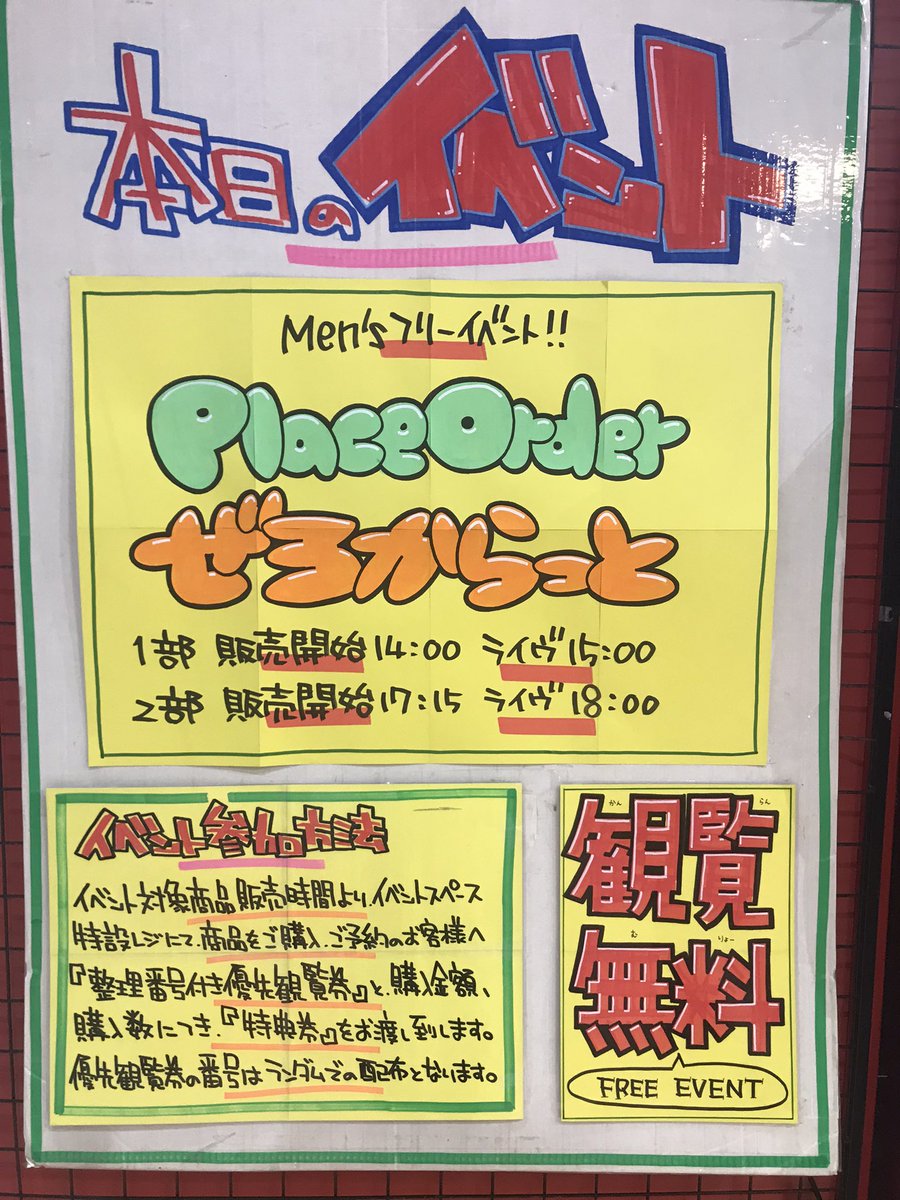 本日のイベント
Men'sフリーイベント!!
PlaceOrder
ぜろからっと
1部 販売開始14:00 ライヴ15:00
2部 販売開始17:15 ライヴ18:00
イベント参加方法
イベント対象商品販売時間より、イベントスペース
特設レジにて、商品をご購入、ご予約のお客様へ
『整理番号付き優先観覧券』と、購入金額、
購入数につき、『特典券』をお渡し致します。
優先観覧券の番号はランダムでの配布となります。
かん らん
観覧
む りょー
無料
FREE EVENT